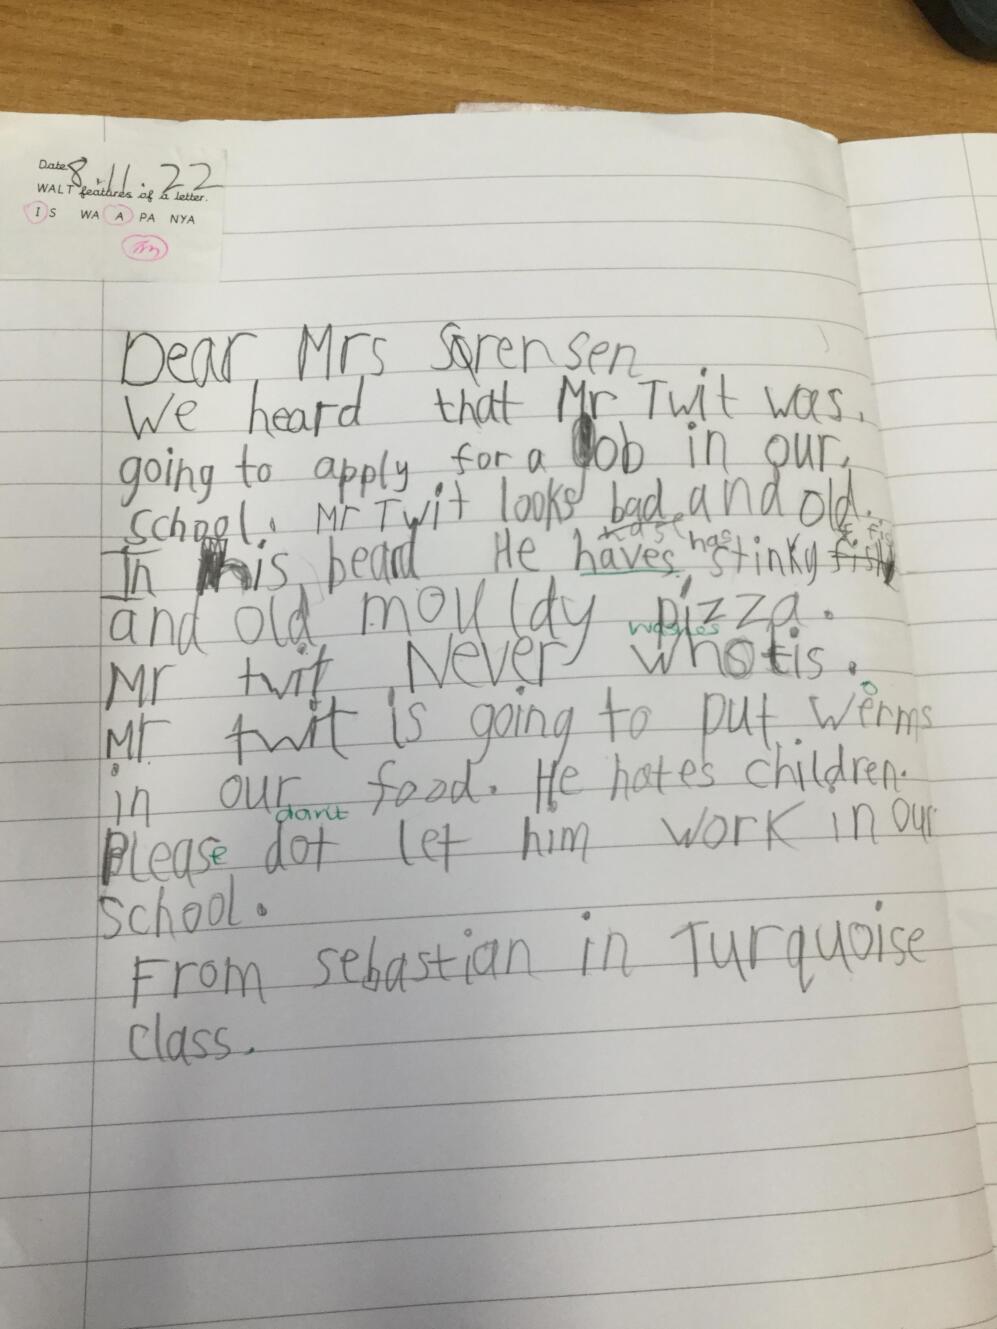 Date 8.11.22
WALT features of a letter.
I S WA A PA NYA
Dear Mrs Sorensen
We heard that Mr Twit was.
going to apply for a Job in our,
school. Mr Twit looks bad and old.
has has
In his beard He haves stinky fish
and old mouldy pizza.
washes
Mr twit Never whotis.
o
Mr twit is going to put werms
in our food. He hates children.
don't
Please dot let him work in our
school.
From sebastian in Turquoise
class.